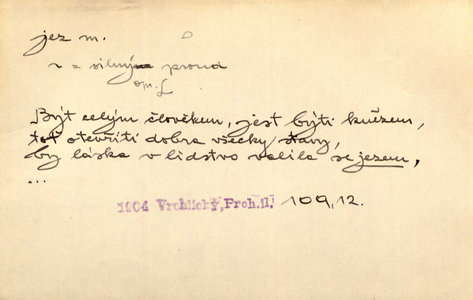 jez m.
= silný proud
Být celým člověkem, jest býti knězem,
toť otevříti dobra všecky stavy,
by láska v lidstvo valila se jezem,
...
1904 Vrchlický, Prch.II. 109,12.